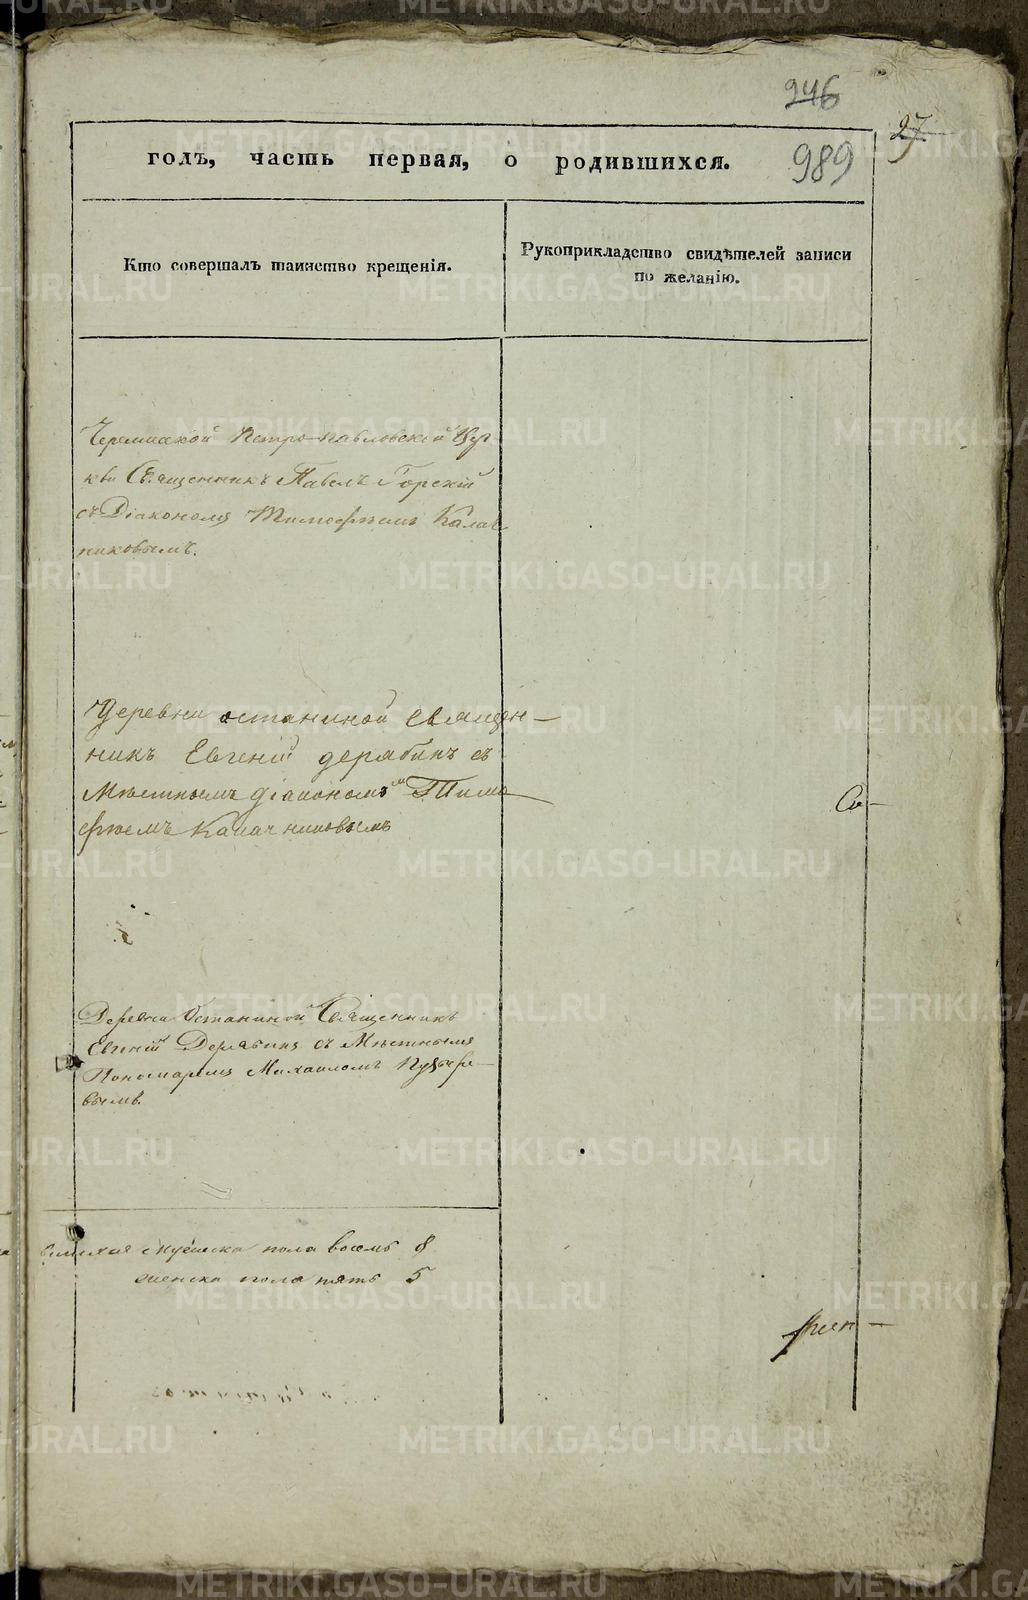 246
27
989
годъ, часть первая, о родившихся.
Кто совершалъ таинство крещенія.
Рукоприкладство свидѣтелей записи
по желанію.
Черемисской Петро-павловской Цер
кви Священникъ Павелъ Горскій
съ Діакономъ Тимофѣемъ Калач
никовымъ.
Деревни останиной священ-
никъ Евгеній дерябинъ съ
Мѣстнымъ діакономъ Тимо
фѣемъ Калачниковымъ
Со-
Деревни Останиной Священникъ
Евгеній Дерябинъ съ Мѣстнымъ
Пономаремъ Михаиломъ
вымъ.
мужеска пола восемь 8
женска пола пять 5
METRIKI.GASO-URAL.RU